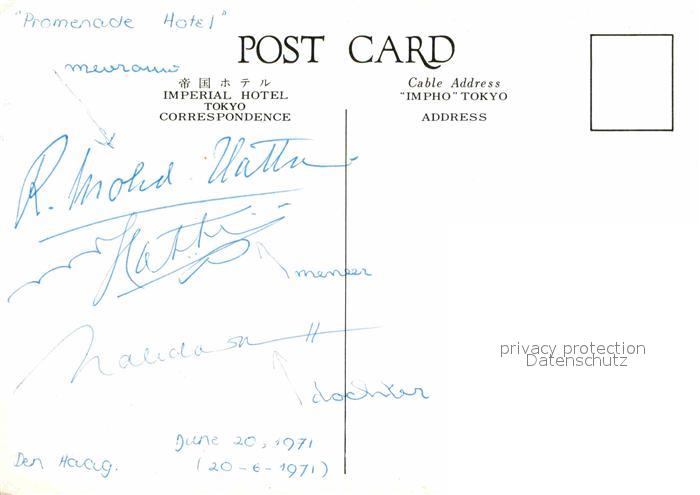 "Promenade Hotel"
mevrouw
POST CARD
帝国ホテル
IMPERIAL HOTEL
TOKYO
CORRESPONDENCE
Cable Address
"IMPHO" TOKYO
ADDRESS
R. Mohd. Hatta
Hatta
meneer
Halida H
dochter
privacy protection
Datenschutz
June 20, 1971
(20-6-1971)
Den Haag.